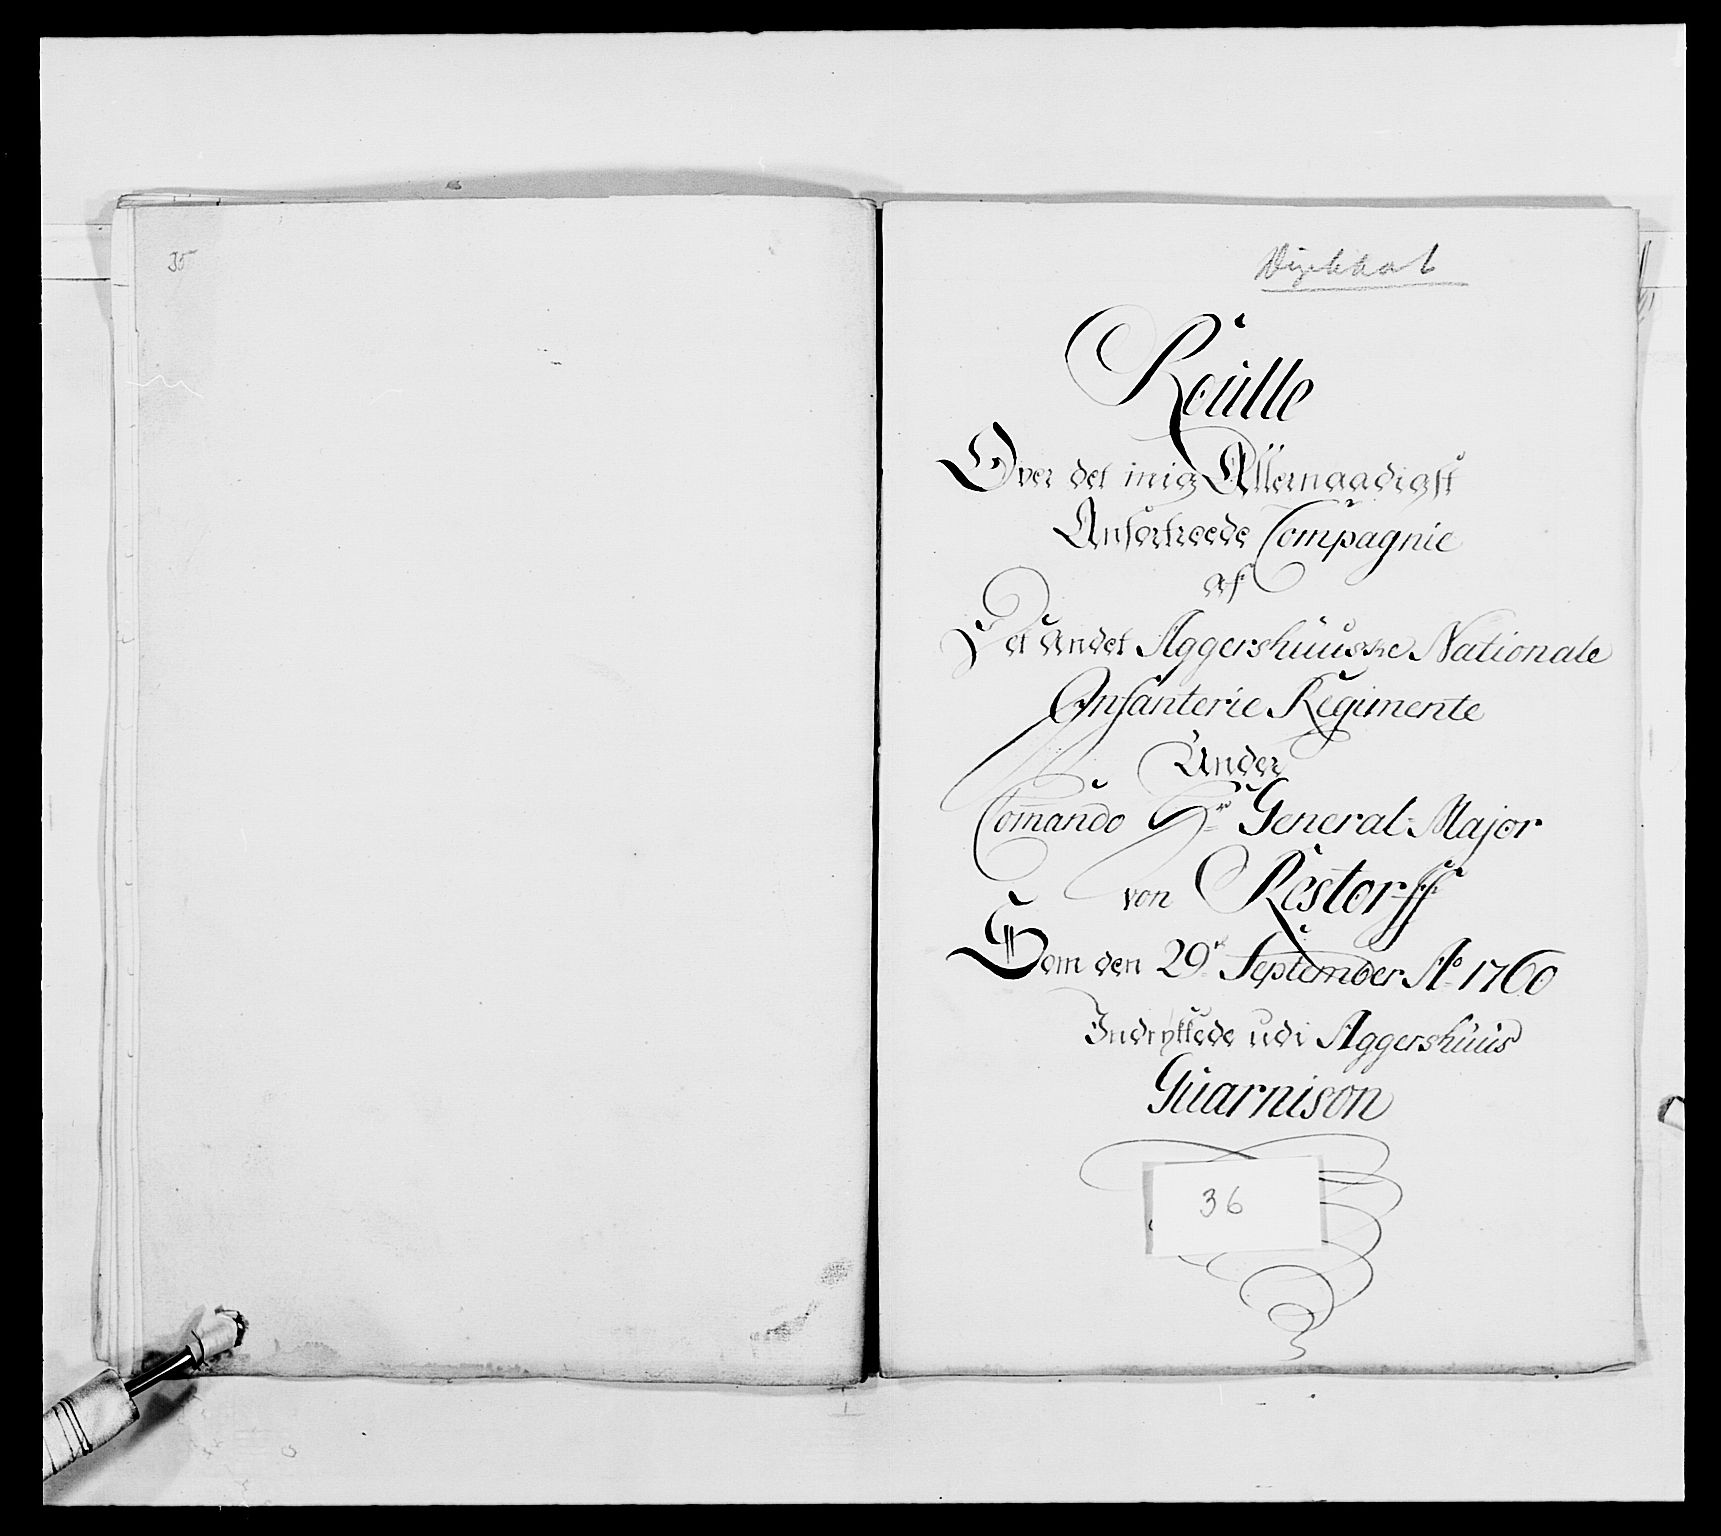 35
Roülle
Over det mig Allernaadigst
Anfortroede Compagnie
af
Det andet Aggershüuske Nationale
Infanterie Regimente
Under
Com̄ando Hr General-Major
von Restorff
Som den 29de September Ao 1760
Indrykkede udi Aggershüüs
Güarnison
36